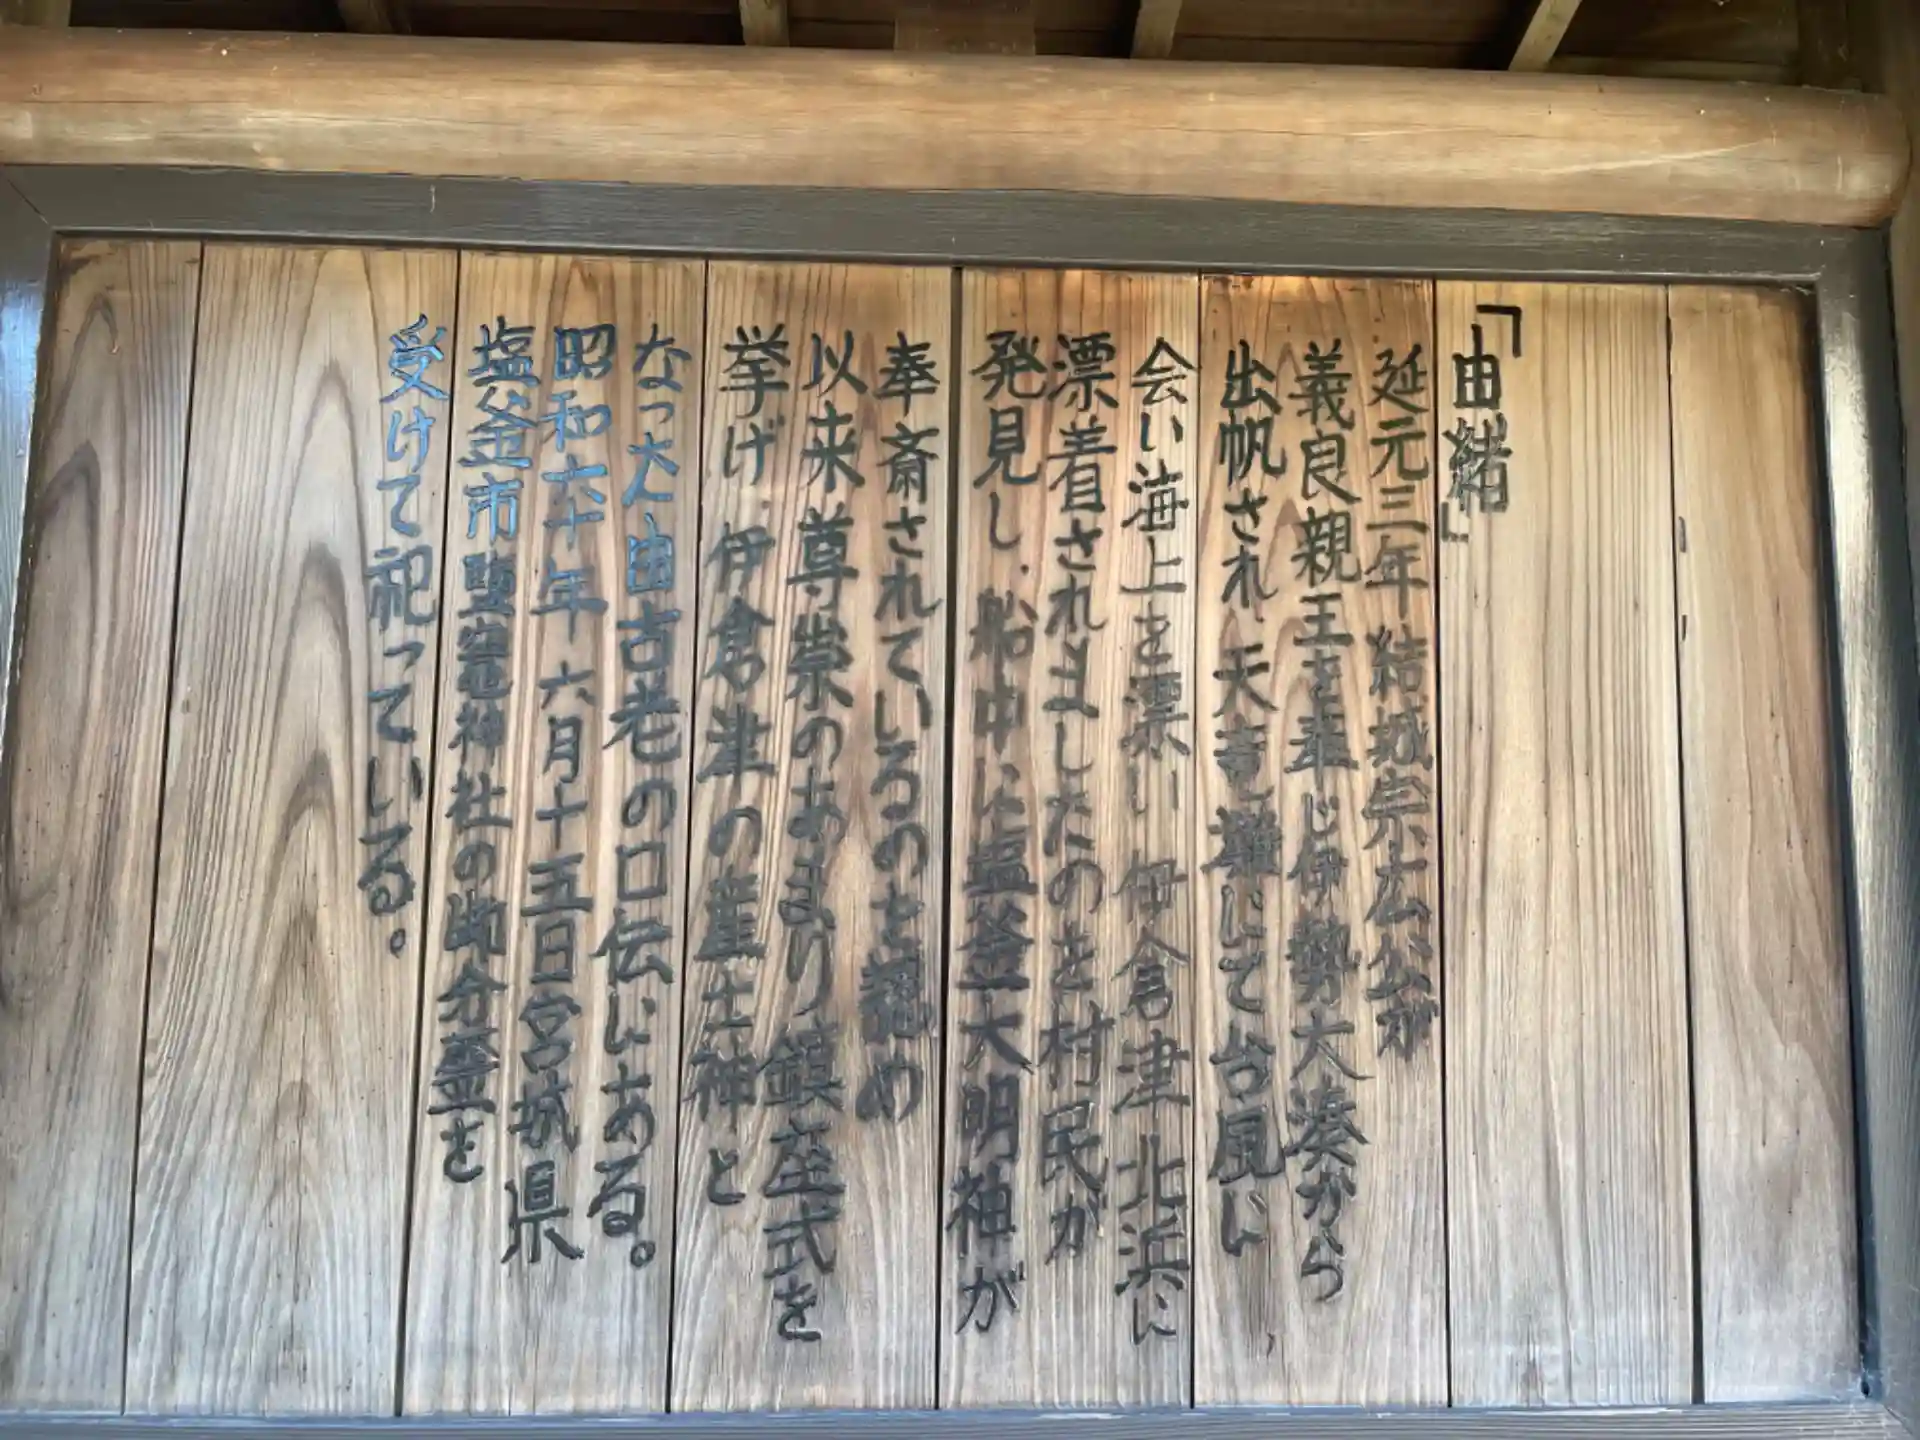 「由緒」
延元三年 結城宗広公が
義良親王を奉じ伊勢大湊から
出帆され、天竜灘にて台風に
会い海上を漂い 伊倉津北浜に
漂着されましたのを村民が
発見し、船中に塩釜大明神が
奉斎されているのを認め
以来 尊崇のあまり鎮座式を
挙げ、伊倉津の産土神と
なった由古老の口伝にある。
昭和六十年六月十五日宮城県
塩釜市鹽竈神社の御分霊を
受けて祀っている。